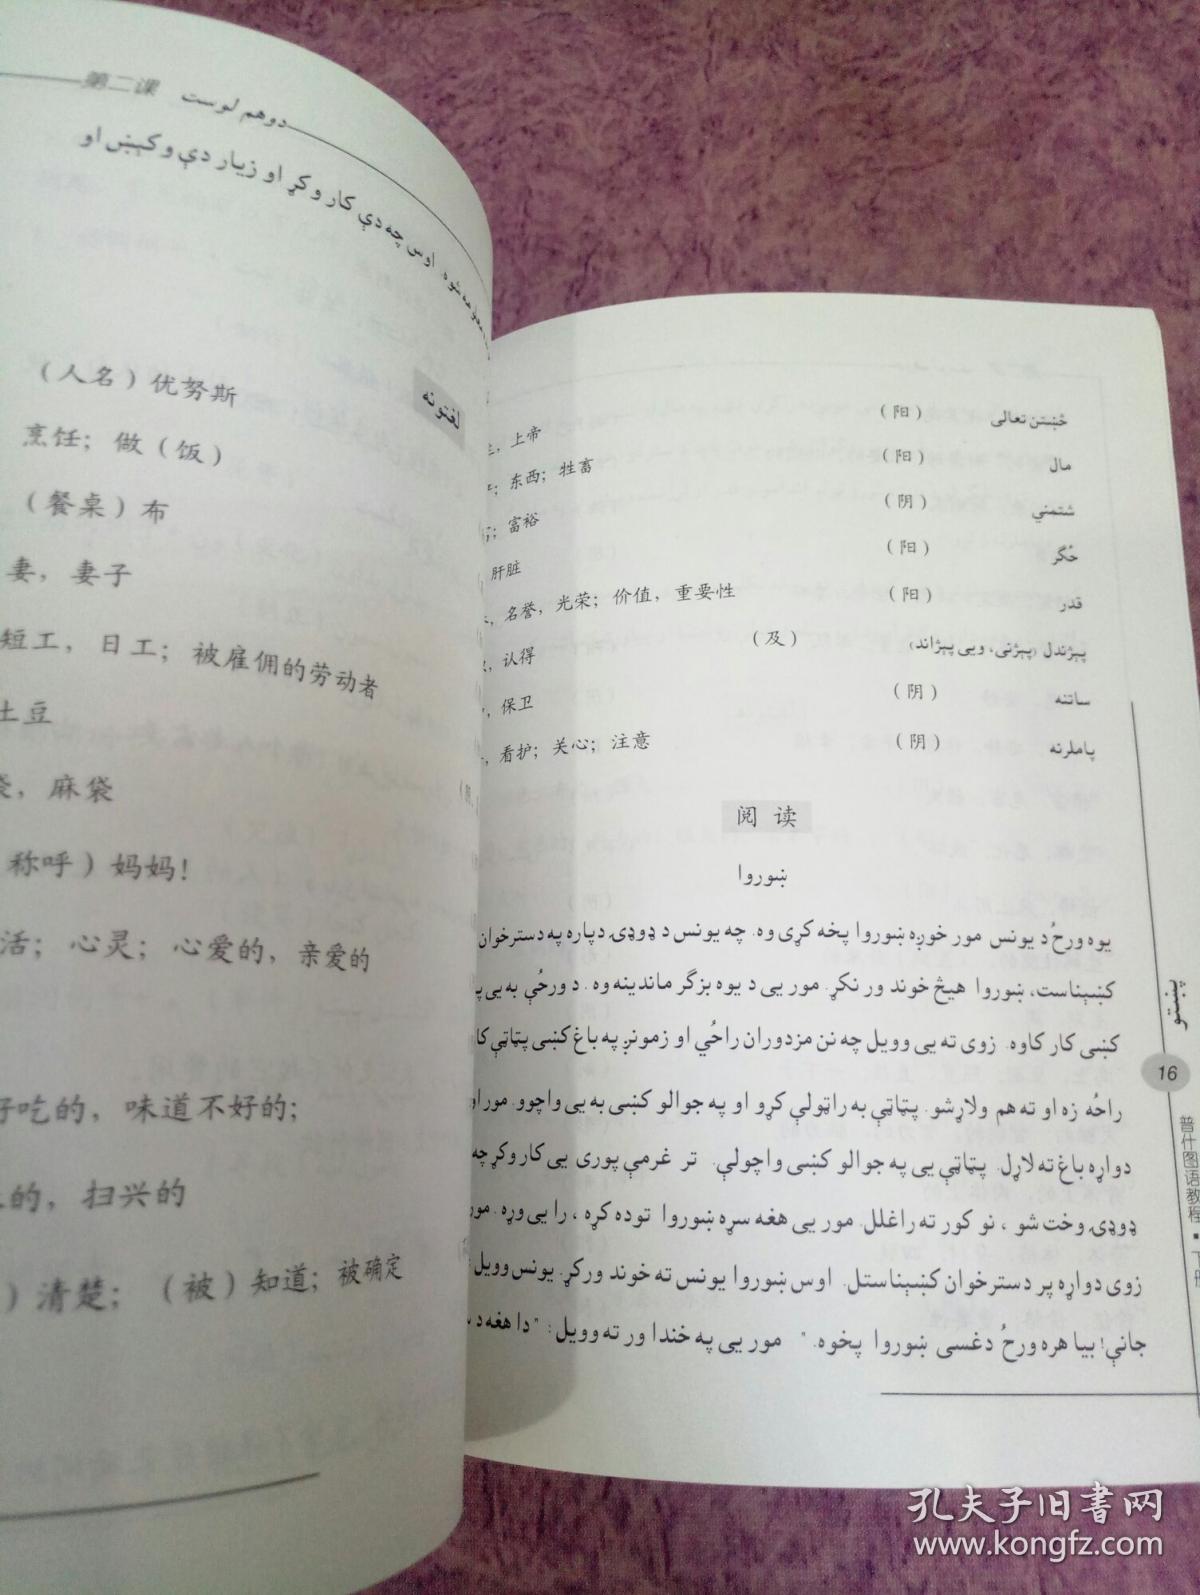 第二课 دوهم لوست
اوس چه دې کار وکړ او زیار دې وکېښ او
لغتونه
（人名）优努斯
烹饪；做（饭）
（餐桌）布
妻，妻子
短工，日工；被雇佣的劳动者
土豆
麻袋
称呼）妈妈！
活；心灵；心爱的，亲爱的
好吃的，味道不好的；
的，扫兴的
）清楚；（被）知道；被确定
上帝 （阳） څښتن تعالی
东西；牲畜 （阳） مال
富裕 （阴） شتمني
肝脏 （阳） ځگر
名誉，光荣；价值，重要性 （阳） قدر
认得 （及） پېژندل (پېژنی، ویی پېژاند)
保卫 （阴） ساتنه
看护；关心；注意 （阴） پاملرنه
阅读
ښوروا
یوه ورځ د یونس مور خوږه ښوروا پخه کړی وه. چه یونس د ډوډۍ دپاره په دسترخوان
کښېناست، ښوروا هیڅ خوند ور نکړ. مور یی د یوه بزگر ماندینه وه. د ورځې به یی
کښی کار کاوه. زوی ته یی وویل چه نن مزدوران راځي او زمونږ په باغ کښی پټاټې
راځه زه او ته هم ولاړشو. پټاټې به راټولې کړو او په جوالو کښی به یی واچوو. مور
دواړه باغ ته لاړل. پټاټې یی په جوالو کښی واچولې. تر غرمې پوری یی کار وکړ چه
ډوډۍ وخت شو، نو کور ته راغلل. مور یی هغه سړه ښوروا توده کړه، را یی وړه. مور
زوی دواړه پر دسترخوان کښېناستل. اوس ښوروا یونس ته خوند ورکړ. یونس وویل
جانې! بیا هره ورځ دغسی ښوروا پخوه." مور یی په خندا ور ته وویل: "دا هغه د
پښتو
16
普什图语教程·下册
孔夫子旧书网
www.kongfz.com